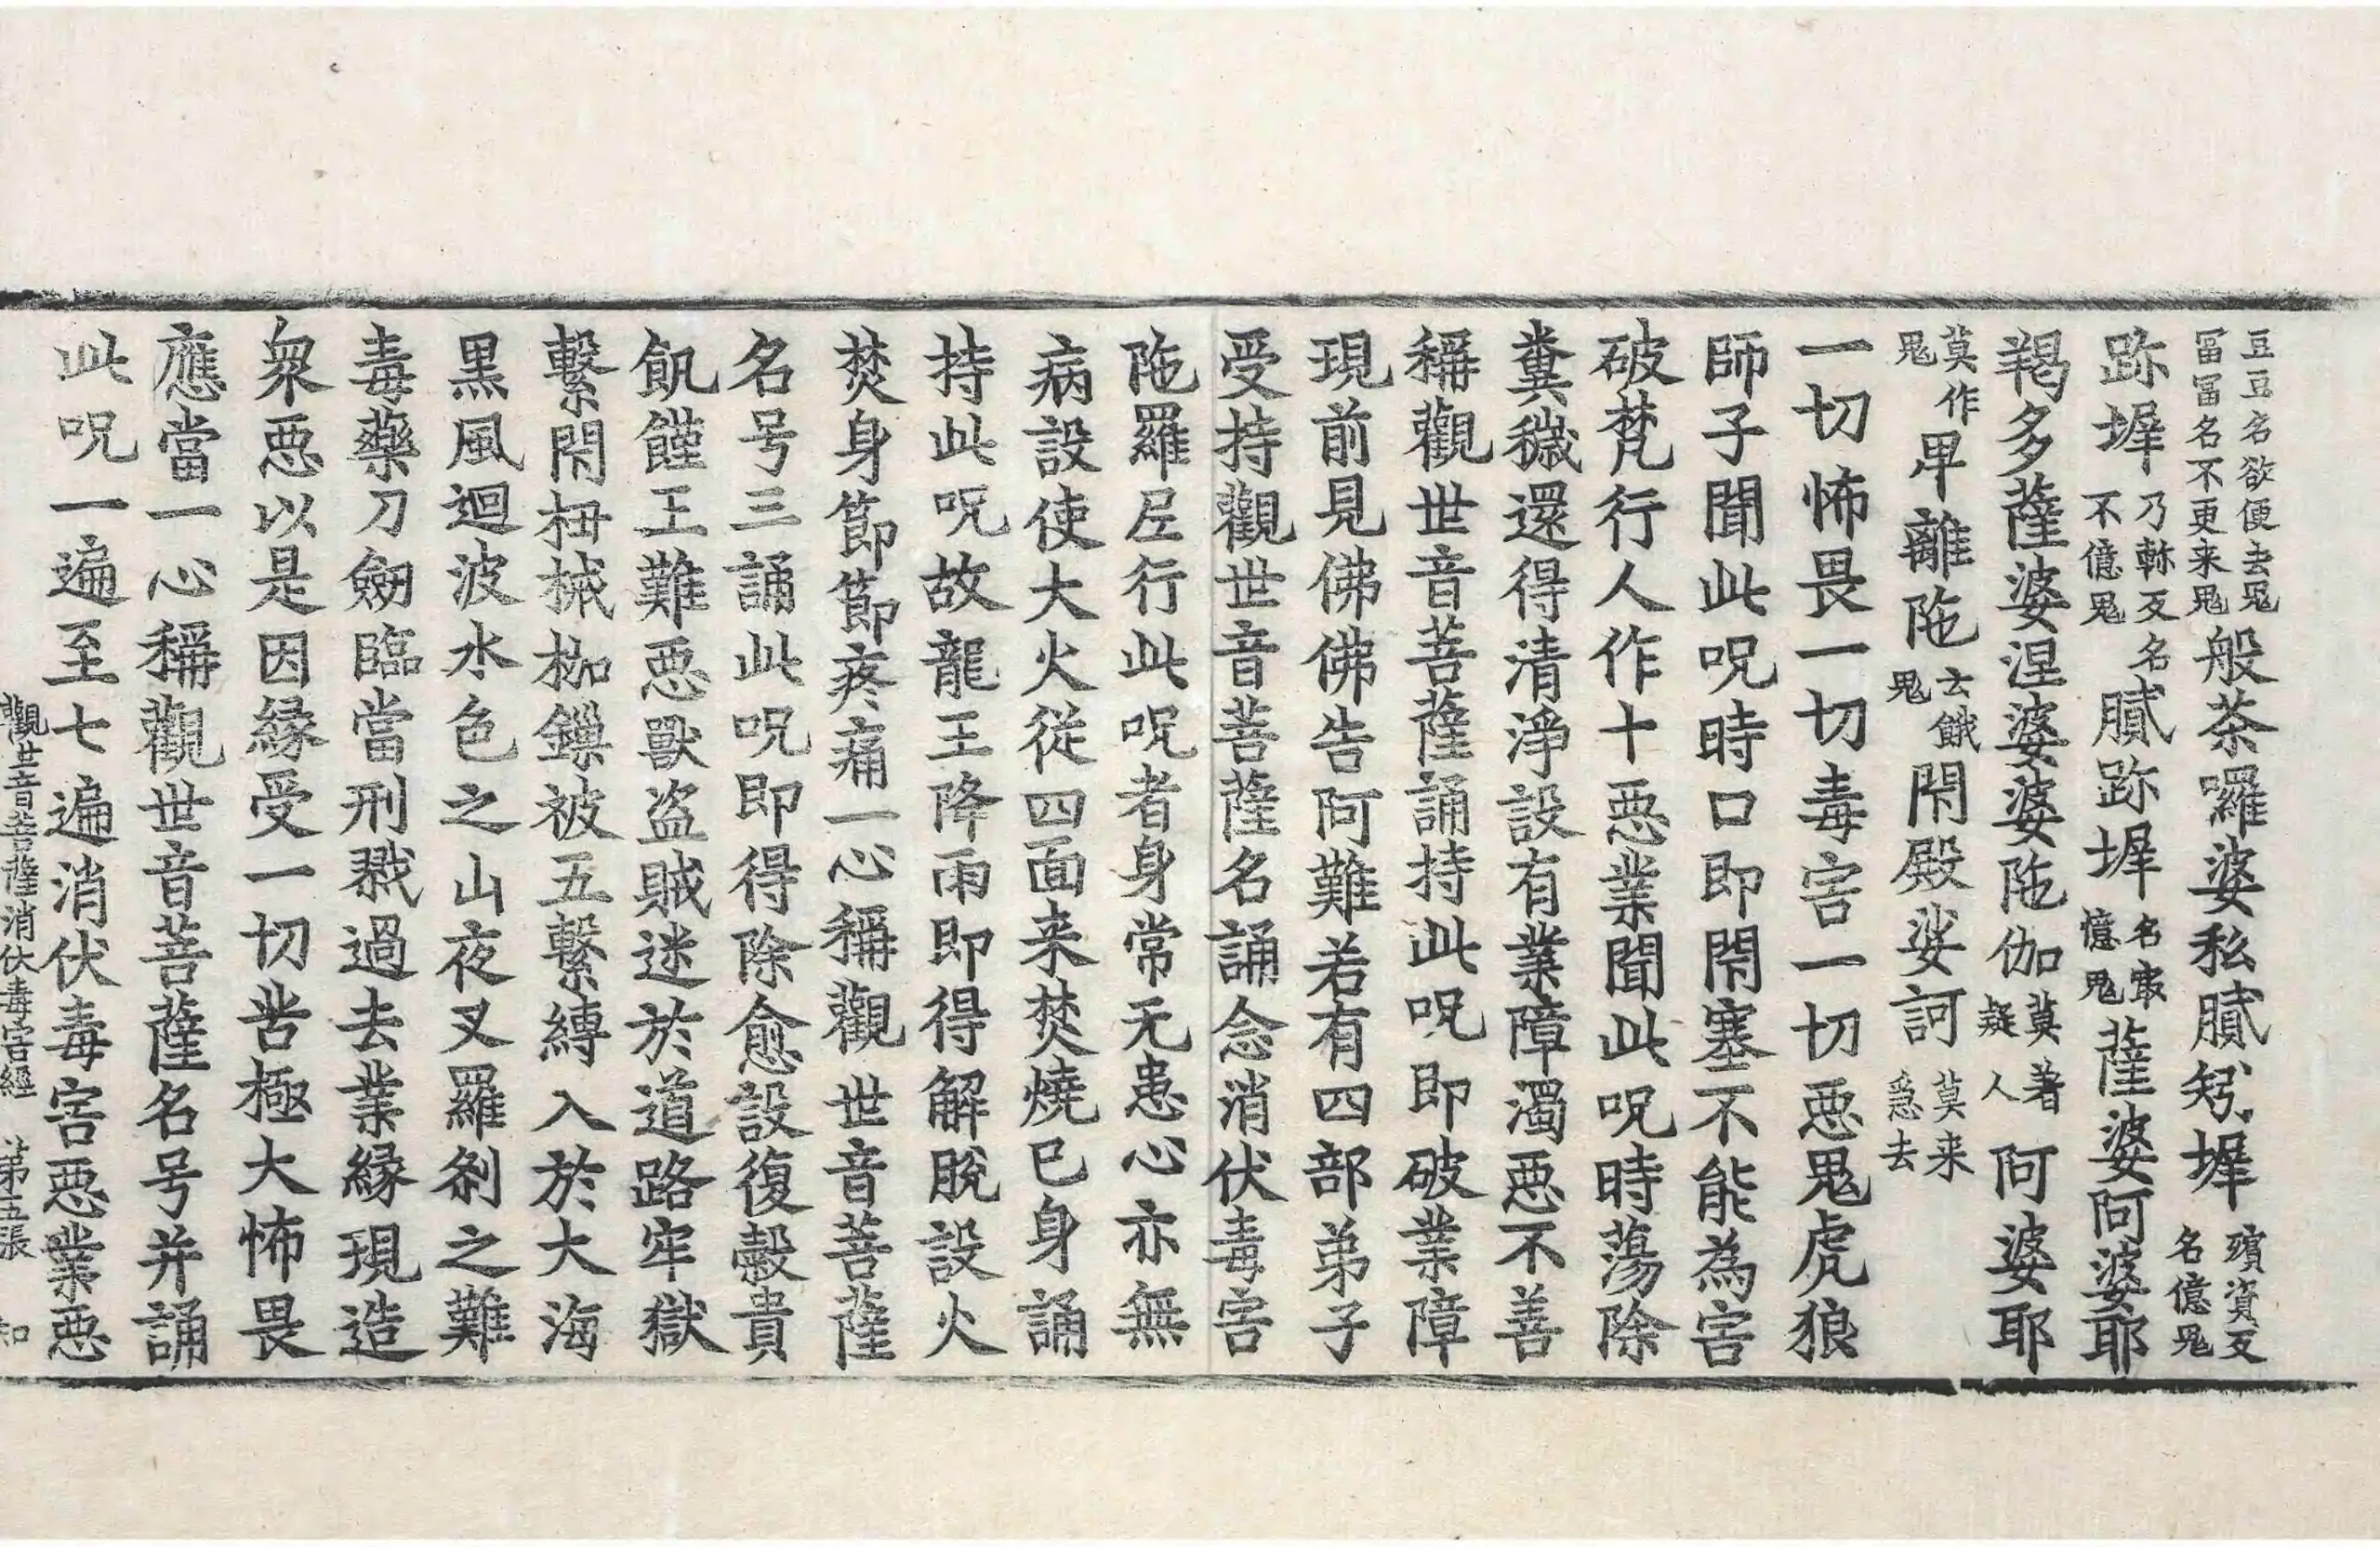 豆豆名欲便去鬼冨冨名不更来鬼般茶囉婆私膩躬墀殯資反名億鬼
跡墀乃𩋾反名不億鬼膩跡墀名最億鬼薩婆阿婆耶
羯多薩婆涅婆婆陁伽莫著疑人阿婆耶
莫作鬼卑離陁去餓鬼閇殿娑訶莫来急去
一切怖畏一切毒害一切惡鬼虎狼
師子聞此呪時口即閇塞不能為害
破梵行人作十惡業聞此呪時蕩除
糞穢還得清淨設有業障濁惡不善
稱觀世音菩薩誦持此呪即破業障
現前見佛佛告阿難若有四部弟子
受持觀世音菩薩名誦念消伏毒害
陁羅尼行此呪者身常无患心亦無
病設使大火從四面来焚燒已身誦
持此呪故龍王降雨即得解脫設火
焚身節節疼痛一心稱觀世音菩薩
名号三誦此呪即得除愈設復穀貴
飢饉王難惡獸盗賊迷於道路牢獄
繫閇杻械枷鏁被五繫縛入於大海
黒風迴波水色之山夜叉羅剎之難
毒藥刀劒臨當刑戮過去業緣現造
衆惡以是因緣受一切苦極大怖畏
應當一心稱觀世音菩薩名号并誦
此呪一遍至七遍消伏毒害惡業惡
觀世音菩薩消伏毒害經 第五張 知